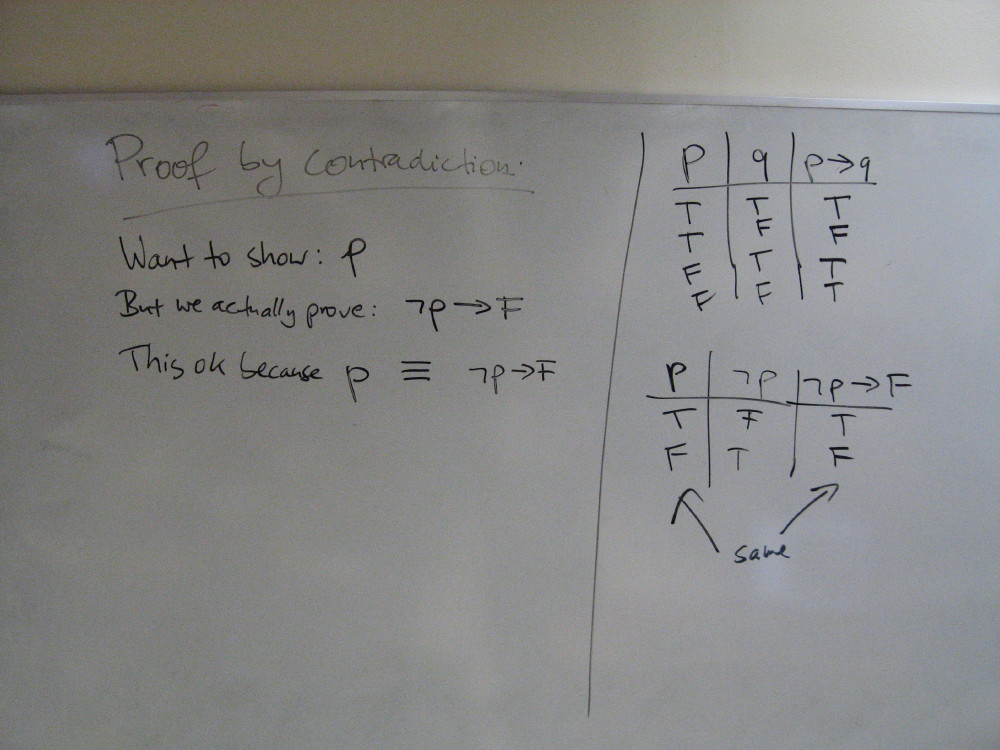 Proof by contradiction.
Want to show: p
But we actually prove: ¬p → F
This ok because p ≡ ¬p → F
p q p → q
T T T
T F F
F T T
F F T
p ¬p ¬p → F
T F T
F T F
same